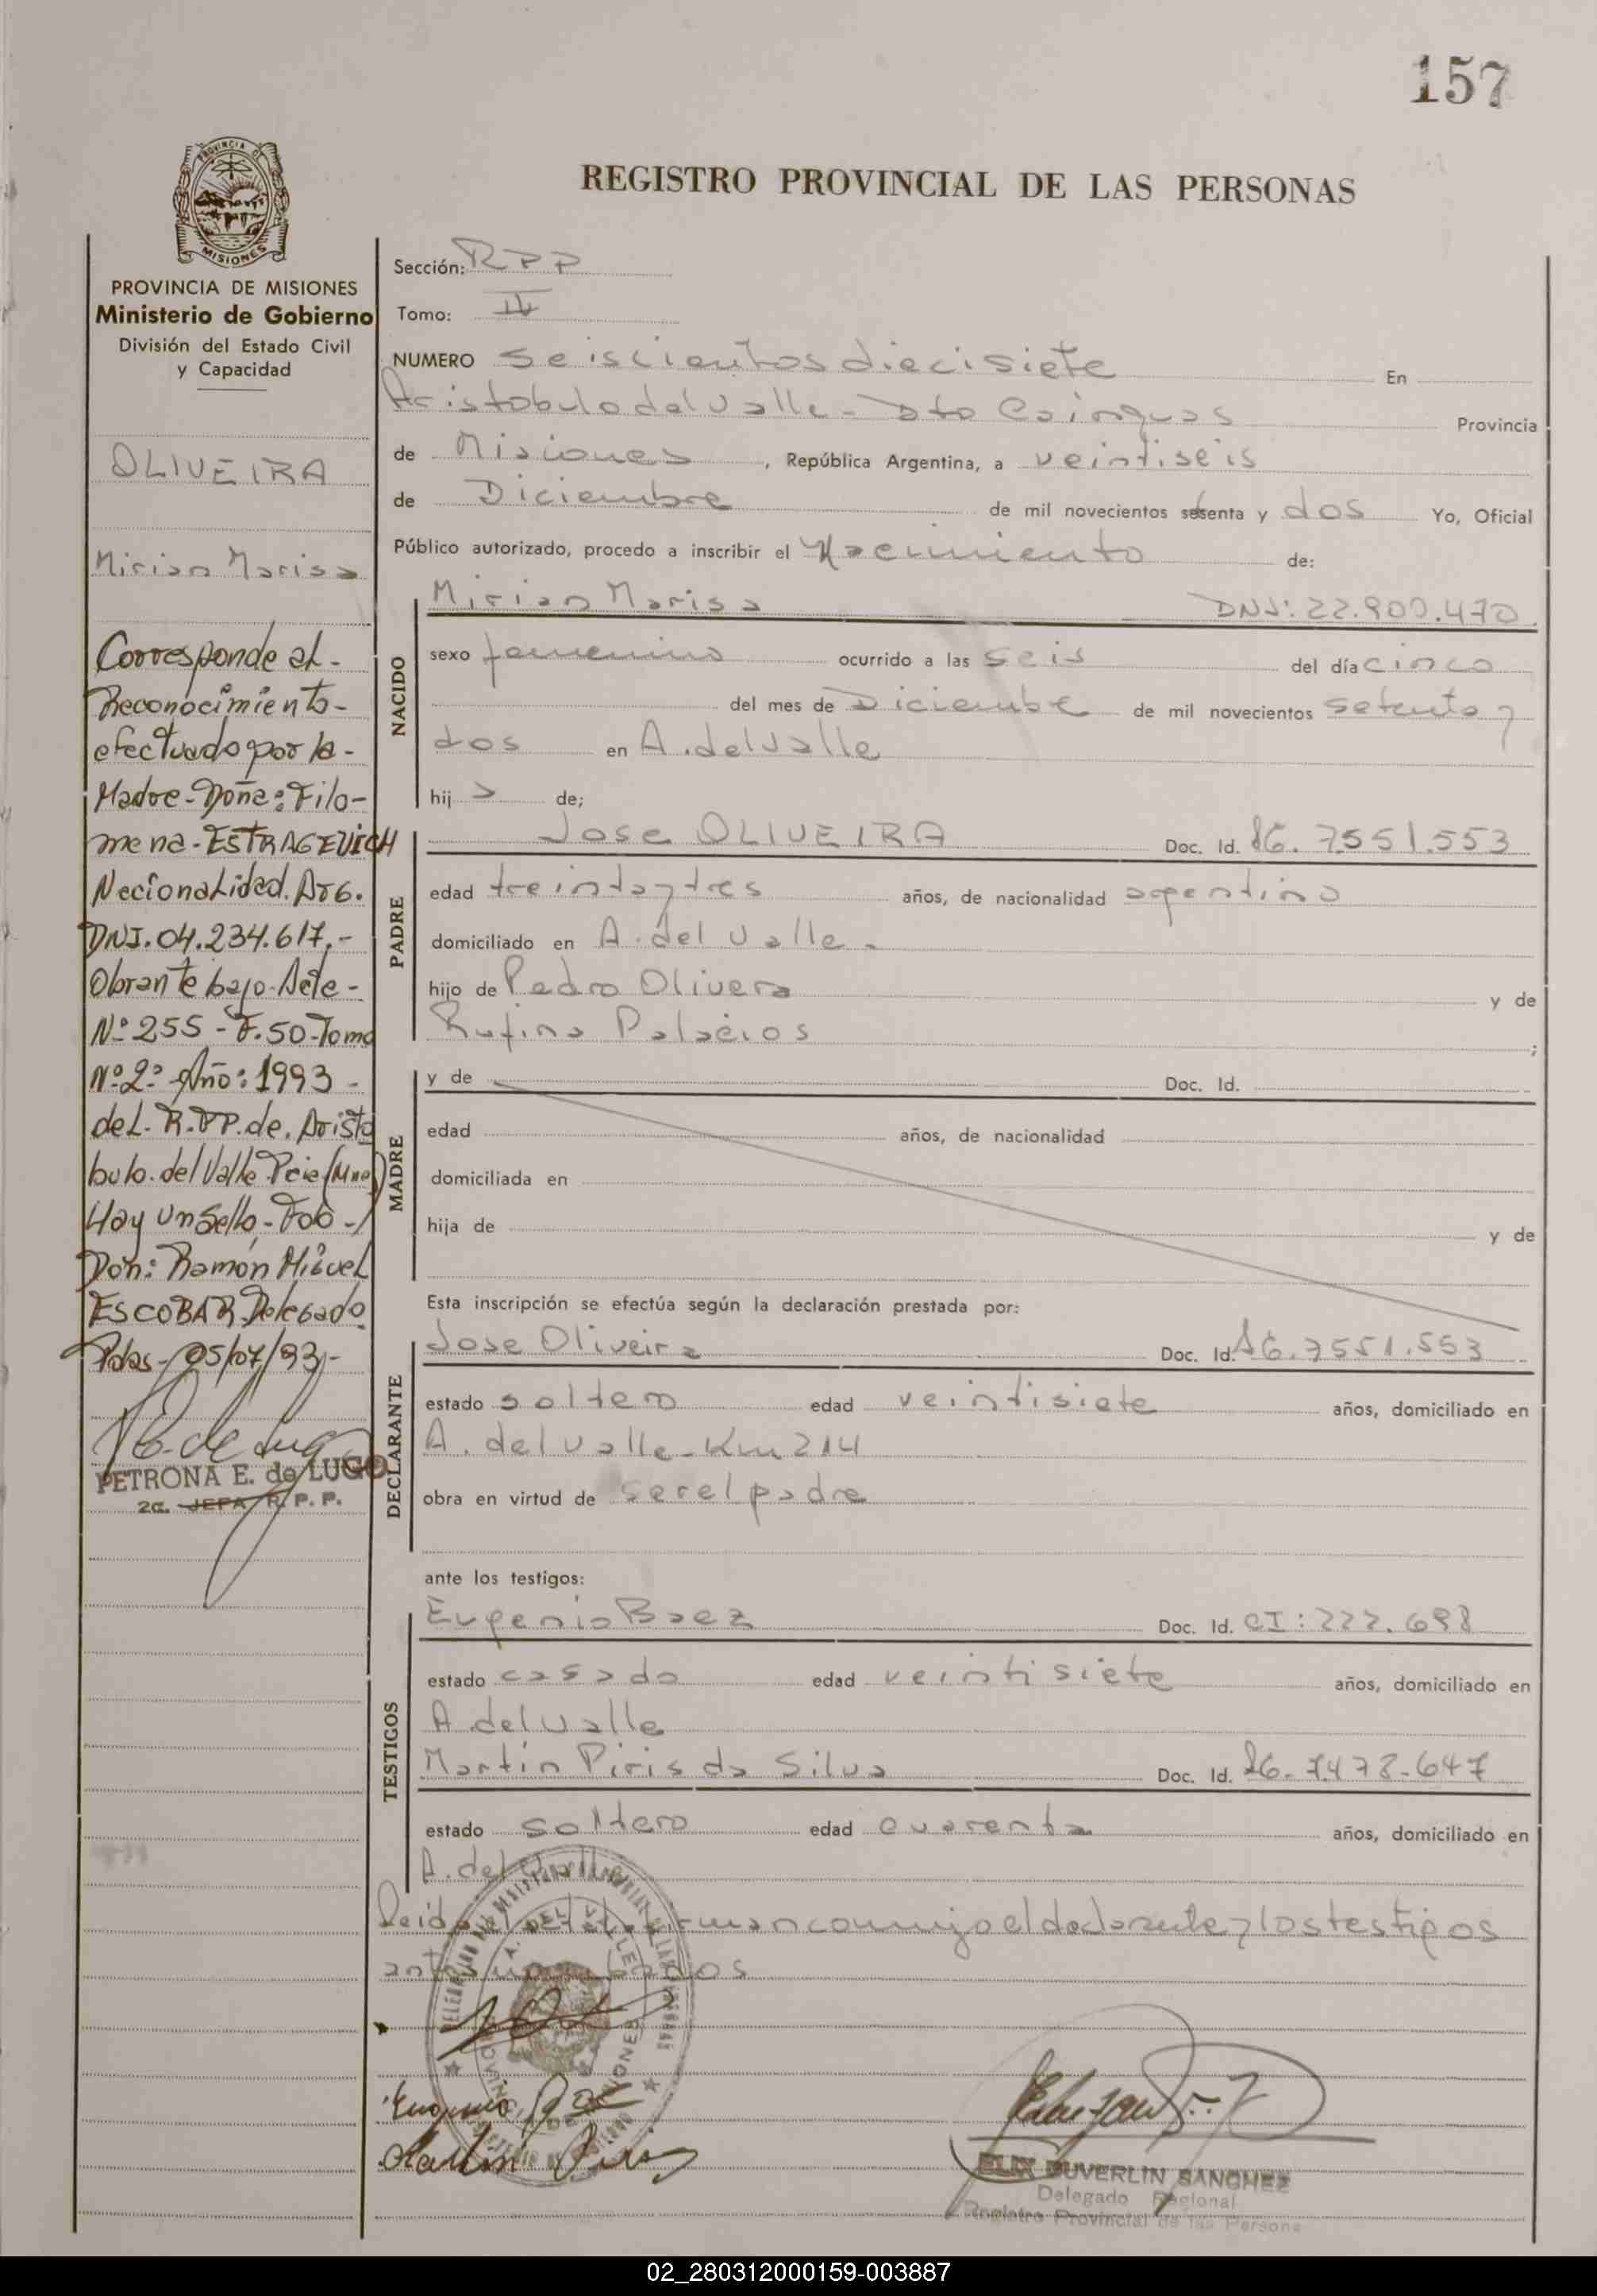 157
REGISTRO PROVINCIAL DE LAS PERSONAS
PROVINCIA DE MISIONES
Ministerio de Gobierno
División del Estado Civil
y Capacidad
OLIVEIRA
Mirian Marisa
Corresponde al-
Reconocimiento-
efectuado por la-
Madre-Doña: Filo-
mena-ESTRAGEVICH
Nacionalidad. Arg.
DNI. 04.234.617.-
Obrante bajo-Acta-
Nº 255 - F.50-Tomo
Nº 2º Año: 1993-
del. R.PP. de. Aristo
bulo. del Valle Pcia (Mnes)
Hay un Sello-Fdo-
Don: Ramón Miguel
ESCOBAR Delegado
Pdas-05/07/93-
PETRONA E. de LUGO
2a. JEFA R. P. P.
Sección: RPP
Tomo: IV
NUMERO seiscientos diecisiete En
Aristobulo del Valle - Dto Cainguas Provincia
de Misiones, República Argentina, a veintiseis
de Diciembre de mil novecientos setenta y dos Yo, Oficial
Público autorizado, procedo a inscribir el Nacimiento de:
NACIDO
Mirian Marisa DNI: 22.900.470
sexo femenino ocurrido a las seis del día cinco
del mes de Diciembre de mil novecientos setenta y
dos en A. del Valle
hij a de;
PADRE
Jose OLIVEIRA Doc. Id. 7551.553
edad treinta y tres años, de nacionalidad argentina
domiciliado en A. del Valle.
hijo de Pedro Olivera y de
Rufina Palacios ;
MADRE
y de Doc. Id.
edad años, de nacionalidad
domiciliada en
hija de y de
Esta inscripción se efectúa según la declaración prestada por:
DECLARANTE
Jose Oliveira Doc. Id. 7551.553
estado soltero edad veintisiete años, domiciliado en
A. del Valle - Km 214
obra en virtud de ser el padre
ante los testigos:
TESTIGOS
Eugenio Baez Doc. Id. CI: 222.698
estado casado edad veintisiete años, domiciliado en
A. del Valle
Martin Piris da Silva Doc. Id. 7.478-647
estado soltero edad cuarenta años, domiciliado en
A. del Valle
Leida el acta firman conmigo el declarante y los testigos
Eugenio Baez
Martin Piris
ELIX DUVERLIN SANCHEZ
Delegado Regional
Registro Provincial de las Persona
02_280312000159-003887